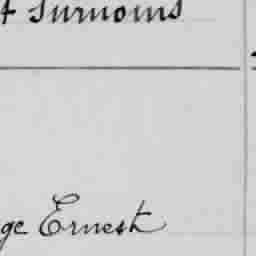 t Surnoms
ge Ernest